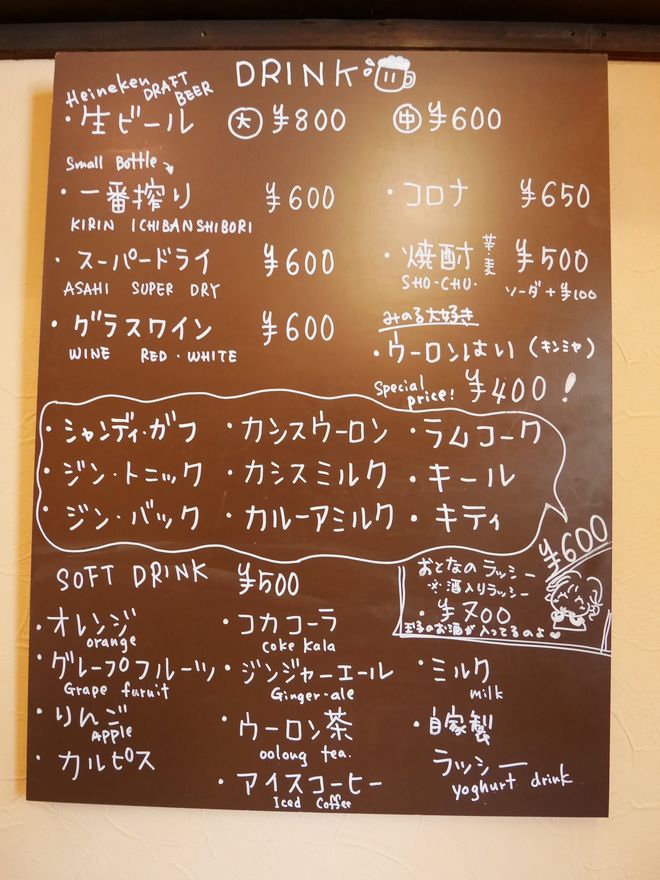 DRINK
Heineken DRAFT BEER
・生ビール 大 ¥800 中 ¥600
Small Bottle
・一番搾り ¥600
KIRIN ICHIBANSHIBORI
・コロナ ¥650
・スーパードライ ¥600
ASAHI SUPER DRY
・焼酎 芋・麦 ¥500
SHO-CHU・
ソーダ+¥100
・グラスワイン ¥600
WINE RED・WHITE
みのる大好き
・ウーロンはい (キンミヤ)
Special price! ¥400!
・シャンディ・ガフ ・カシスウーロン ・ラムコーク
・ジン・トニック ・カシスミルク ・キール
・ジン・バック ・カルーアミルク ・キティ
¥600
おとなのラッシー
※酒入りラッシー
・¥700
玉子のお酒が入ってるのよ
SOFT DRINK ¥500
・オレンジ
orange
・グレープフルーツ
Grape furuit
・りんご
Apple
・カルピス
・コカコーラ
coke kala
・ジンジャーエール
Ginger-ale
・ウーロン茶
oolong tea.
・アイスコーヒー
Iced Coffee
・ミルク
milk
・自家製
ラッシー
yoghurt drink